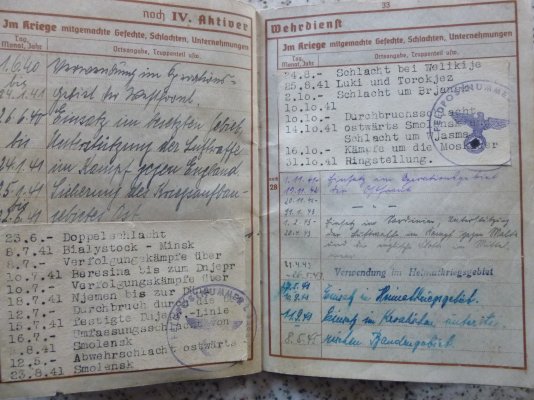 noch IV. Aktiver
Im Kriege mitgemachte Gefechte, Schlachten, Unternehmungen
Tag, Monat, Jahr
Ortsangabe, Truppenteil usw.
1.6.40
Verwendung im Operations-
gebiet der Westfront.
Einsatz im besetzten Gebiet
bis
Unterstützung der Luftwaffe
24.1.41
im Kampf gegen England
25.1.41
Sicherung des Kriegsaufbau-
23.6.- Doppelschlacht
8.7.41 Bialystock - Minsk
Verfolgungskämpfe über
Beresina bis zum Dnjepr
Verfolgungskämpfe über
Njemen bis zur Düna
12.7.- Durchbruch durch die
15.7.41 festigte Dnjepr-Linie
16.7.- Umfassungsschlacht von
8.8.41 Smolensk
12.5.- Abwehrschlacht ostwärts
23.8.41 Smolensk
33
Wehrdienst
Im Kriege mitgemachte Gefechte, Schlachten, Unternehmungen
Tag, Monat, Jahr
Ortsangabe, Truppenteil usw.
24.8.- Schlacht bei Welikije
25.8.41 Luki und Toropez
2.10.- Schlacht um Brjansk
10.10.41
Durchbruchsschlacht
14.10.- ostwärts Smolensk
14.10.41 Schlacht um Wjasma
16.10.- Kämpfe um die Moskauer
31.10.41 Ringstellung.
FELDPOSTNUMMER
28
1.11.41 Einsatz im Operationsgebiet
19.11.41 der Ostfront
20.11.41 - " -
Einsatz im Sardinien, Unterstützung
der Luftwaffe im Kampf gegen Malta
und die englische Flotte im Mittel
meer
Verwendung im Heimatkriegsgebiet
Einsatz im Heimatkriegsgebiet.
Einsatz im Kroatischen
8.5.45 Bandengebiet